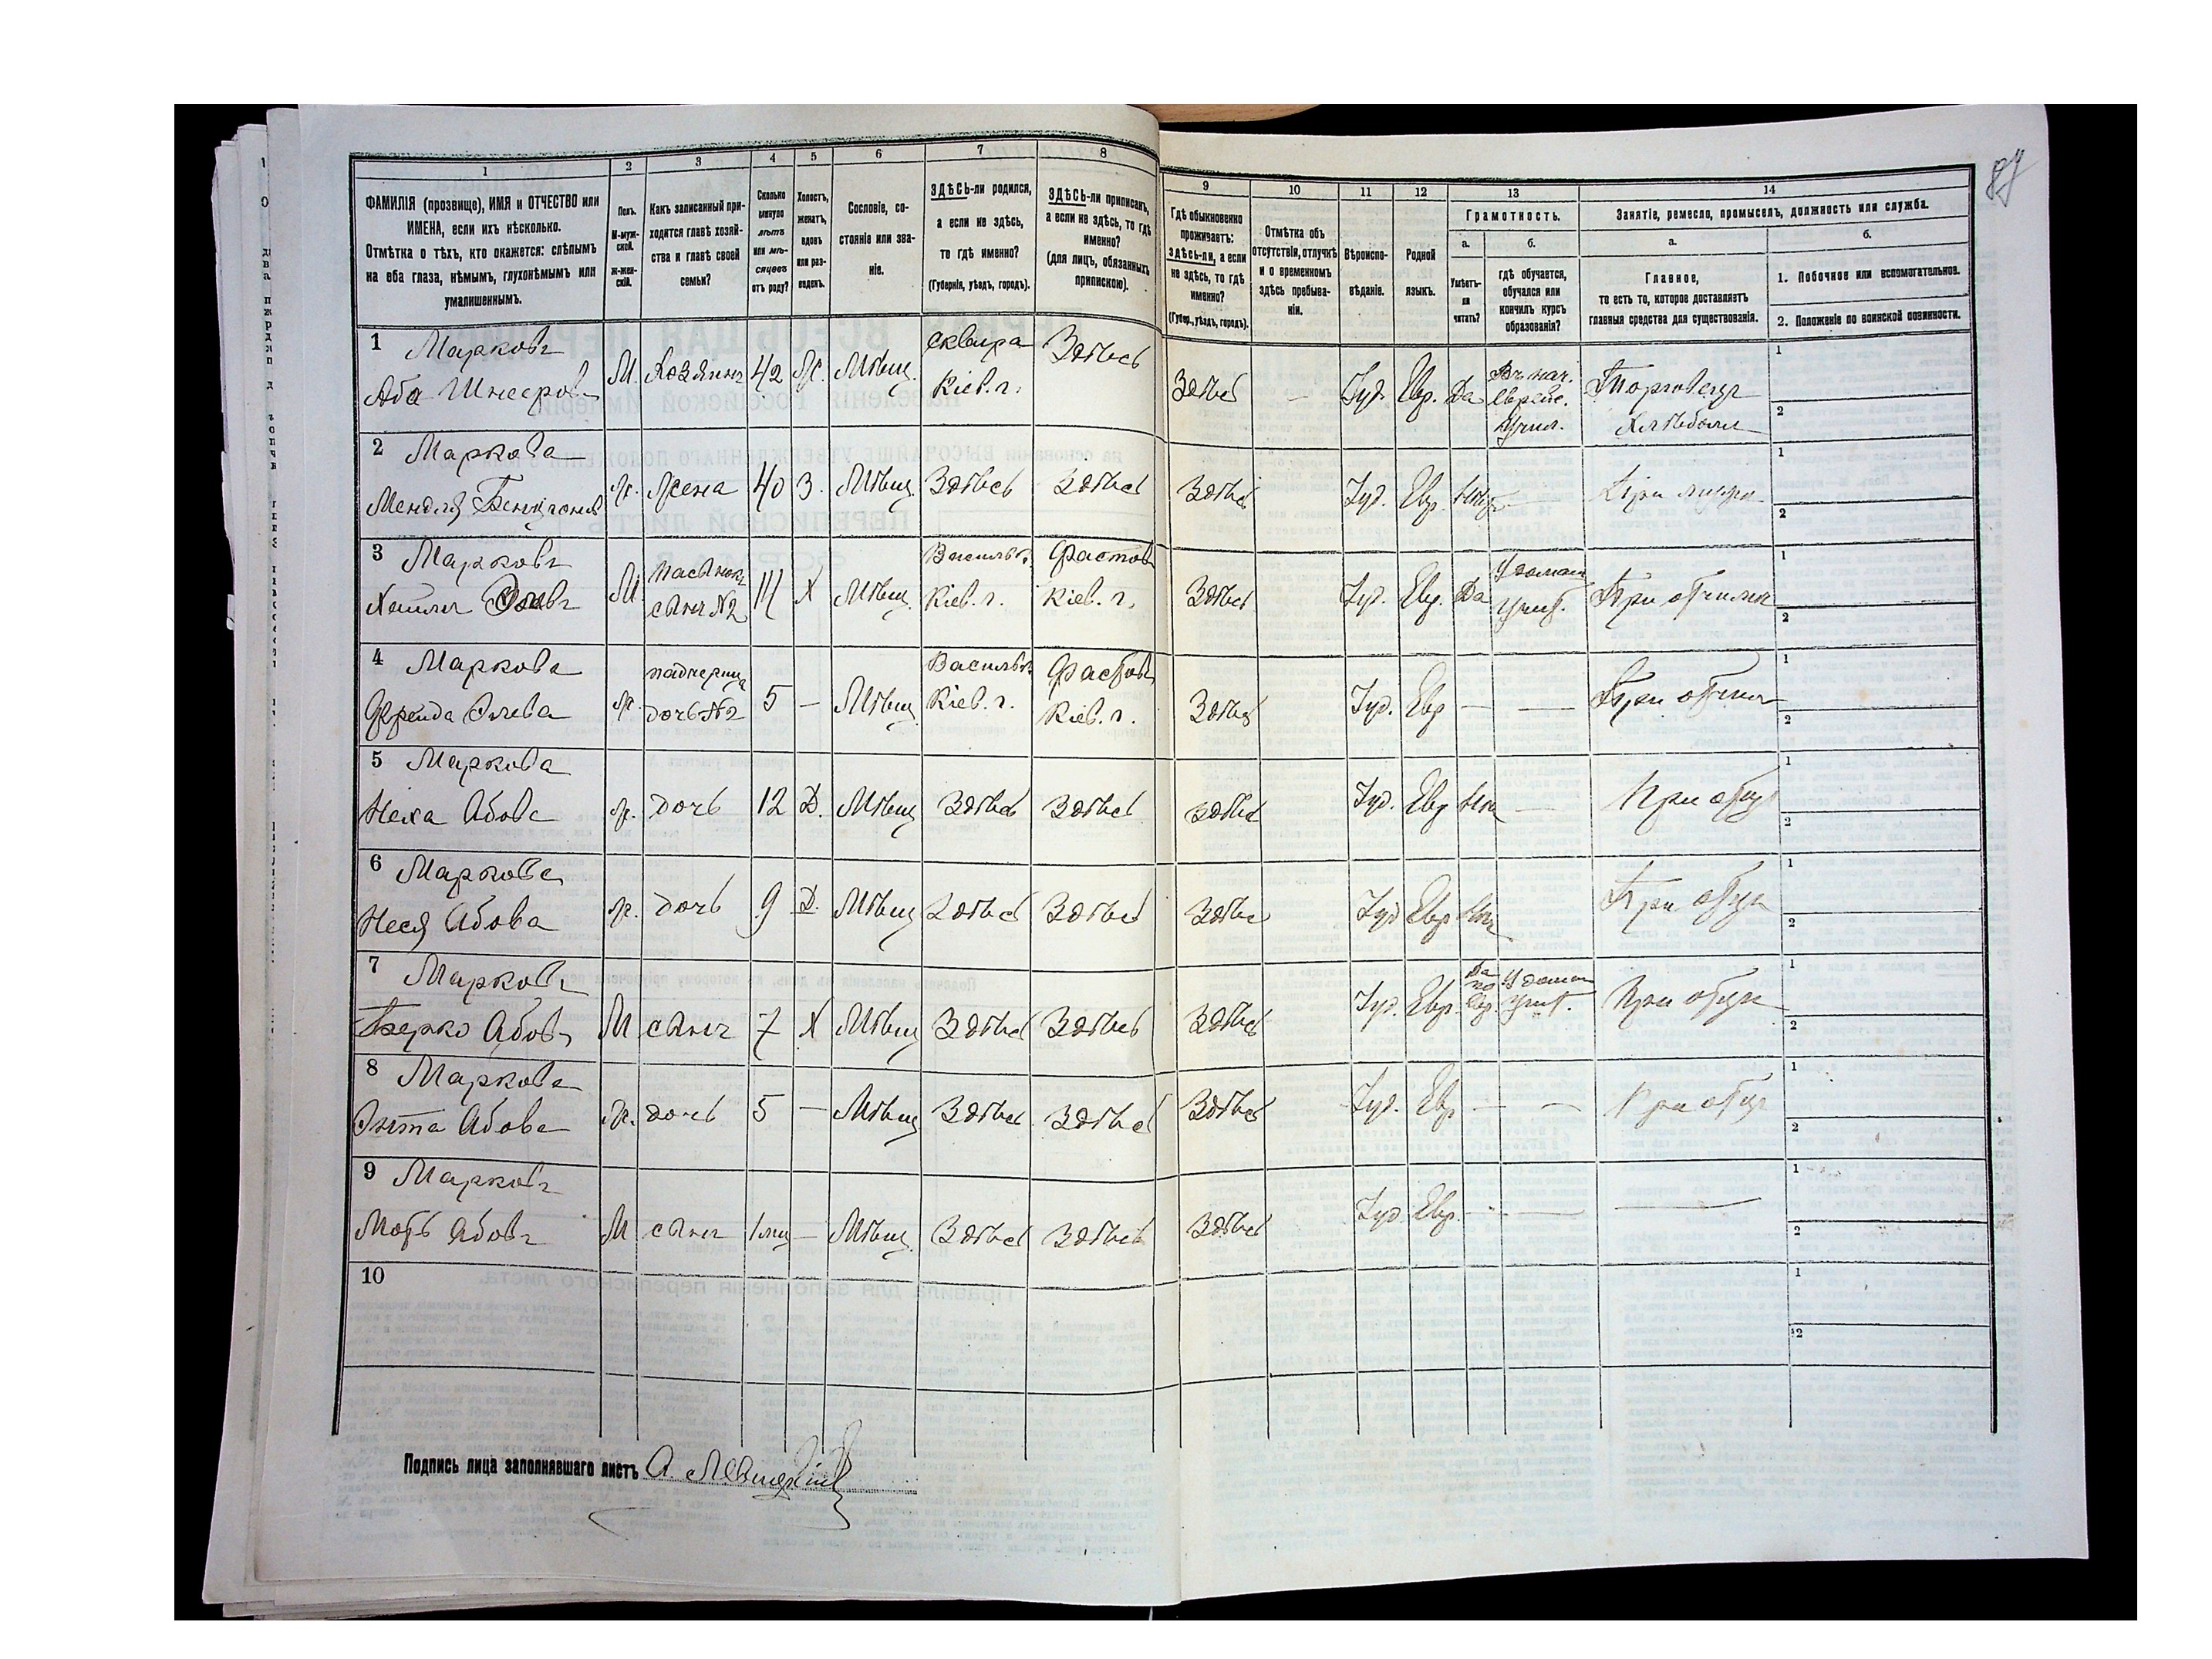 1 2 3 4 5 6 7 8
ФАМИЛІЯ (прозвище), ИМЯ и ОТЧЕСТВО или
ИМЕНА, если ихъ нѣсколько.
Отмѣтка о тѣхъ, кто окажется: слѣпымъ
на оба глаза, нѣмымъ, глухонѣмымъ или
умалишеннымъ.
Полъ.
М-муж-
ской.
ж-жен-
скій.
Какъ записанный при-
ходится главѣ хозяй-
ства и главѣ своей
семьи?
Сколько
минуло
лѣтъ
или мѣ-
сяцевъ
отъ роду?
Холостъ,
женатъ,
вдовъ
или раз-
веденъ.
Сословіе, со-
стояніе или зва-
ніе.
ЗДѢСЬ-ли родился,
а если не здѣсь,
то гдѣ именно?
(Губернія, уѣздъ, городъ).
ЗДѢСЬ-ли приписанъ,
а если не здѣсь, то гдѣ
именно?
(для лицъ, обязанныхъ
припискою).
9 10 11 12 13 14
Гдѣ обыкновенно
проживаетъ:
здѣсь-ли, а если
не здѣсь, то гдѣ
именно?
(Губер., уѣздъ, городъ).
Отмѣтка объ
отсутствіи, отлучкѣ
и о временномъ
здѣсь пребыва-
ніи.
Вѣроиспо-
вѣданіе.
Родной
языкъ.
Грамотность.
а. б.
Умѣетъ-
ли
читать?
гдѣ обучается,
обучался или
кончилъ курсъ
образованія?
Занятіе, ремесло, промыселъ, должность или служба.
а. б.
Главное,
то есть то, которое доставляетъ
главныя средства для существованія.
1. Побочное или вспомогательное.
2. Положеніе по воинской повинности.
1 Марковъ
Аба Шнееровъ М. Хозяинъ 42 Ж. Мѣщ. Сквира Кіев. г. Здѣсь
Здѣсь — Іуд. Евр. Да Въ нач. еврейс. училищ. Торговецъ хлѣбомъ 1 2
2 Маркова
Мендля ж. жена 40 З. Мѣщ. Здѣсь Здѣсь
Здѣсь Іуд. Евр. Нѣтъ — При мужѣ 1 2
3 Марковъ
М пасынокъ сынъ №2 14 Х Мѣщ. Васильк. Кіев. г. Фастовъ Кіев. г.
Здѣсь Іуд. Евр. Да У домаш учит. При отчимѣ 1 2
4 Маркова
Фрейда ж. падчерица дочь №2 5 — Мѣщ Васильк. Кіев. г. Фастовъ Кіев. г.
Здѣсь Іуд. Евр — — При отчимѣ 1 2
5 Маркова
Неха Абова ж. дочь 12 Д. Мѣщ Здѣсь Здѣсь
Здѣсь Іуд. Евр Нѣтъ — При отцѣ 1 2
6 Маркова
Неся Абова ж. дочь 9 Д. Мѣщ Здѣсь Здѣсь
Здѣсь Іуд Евр Нѣтъ При отцѣ 1 2
7 Марковъ
Берко Абовъ М сынъ 7 Х Мѣщ Здѣсь Здѣсь
Здѣсь Іуд. Евр. Да по Евр. У домаш учит. При отцѣ 1 2
8 Маркова
Абова ж. дочь 5 — Мѣщ Здѣсь Здѣсь
Здѣсь Іуд. Евр — — При отцѣ 1 2
9 Марковъ
Абовъ М сынъ — Мѣщ. Здѣсь Здѣсь
Здѣсь Іуд. Евр. — — — 1 2
10 1 2
Подпись лица заполнявшаго листъ А.